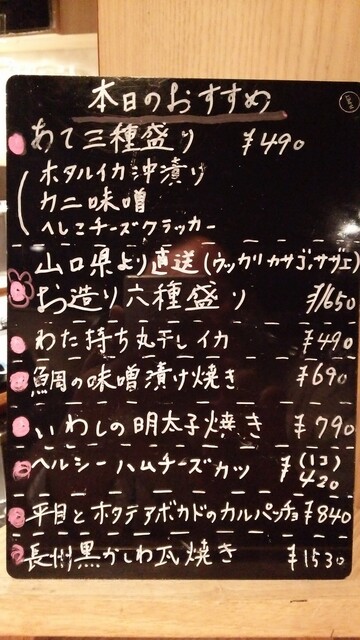 本日のおすすめ
あて三種盛り ¥490
ホタルイカ沖漬け
カニ味噌
へしこチーズクラッカー
山口県より直送(ウッカリカサゴ、サザエ)
お造り六種盛り ¥1650
わた持ち丸干しイカ ¥490
鯛の味噌漬け焼き ¥690
いわしの明太子焼き ¥790
ヘルシーハムチーズカツ ¥(1コ)420
平目とホタテアボカドのカルパッチョ ¥840
長州黒かしわ瓦焼き ¥1530